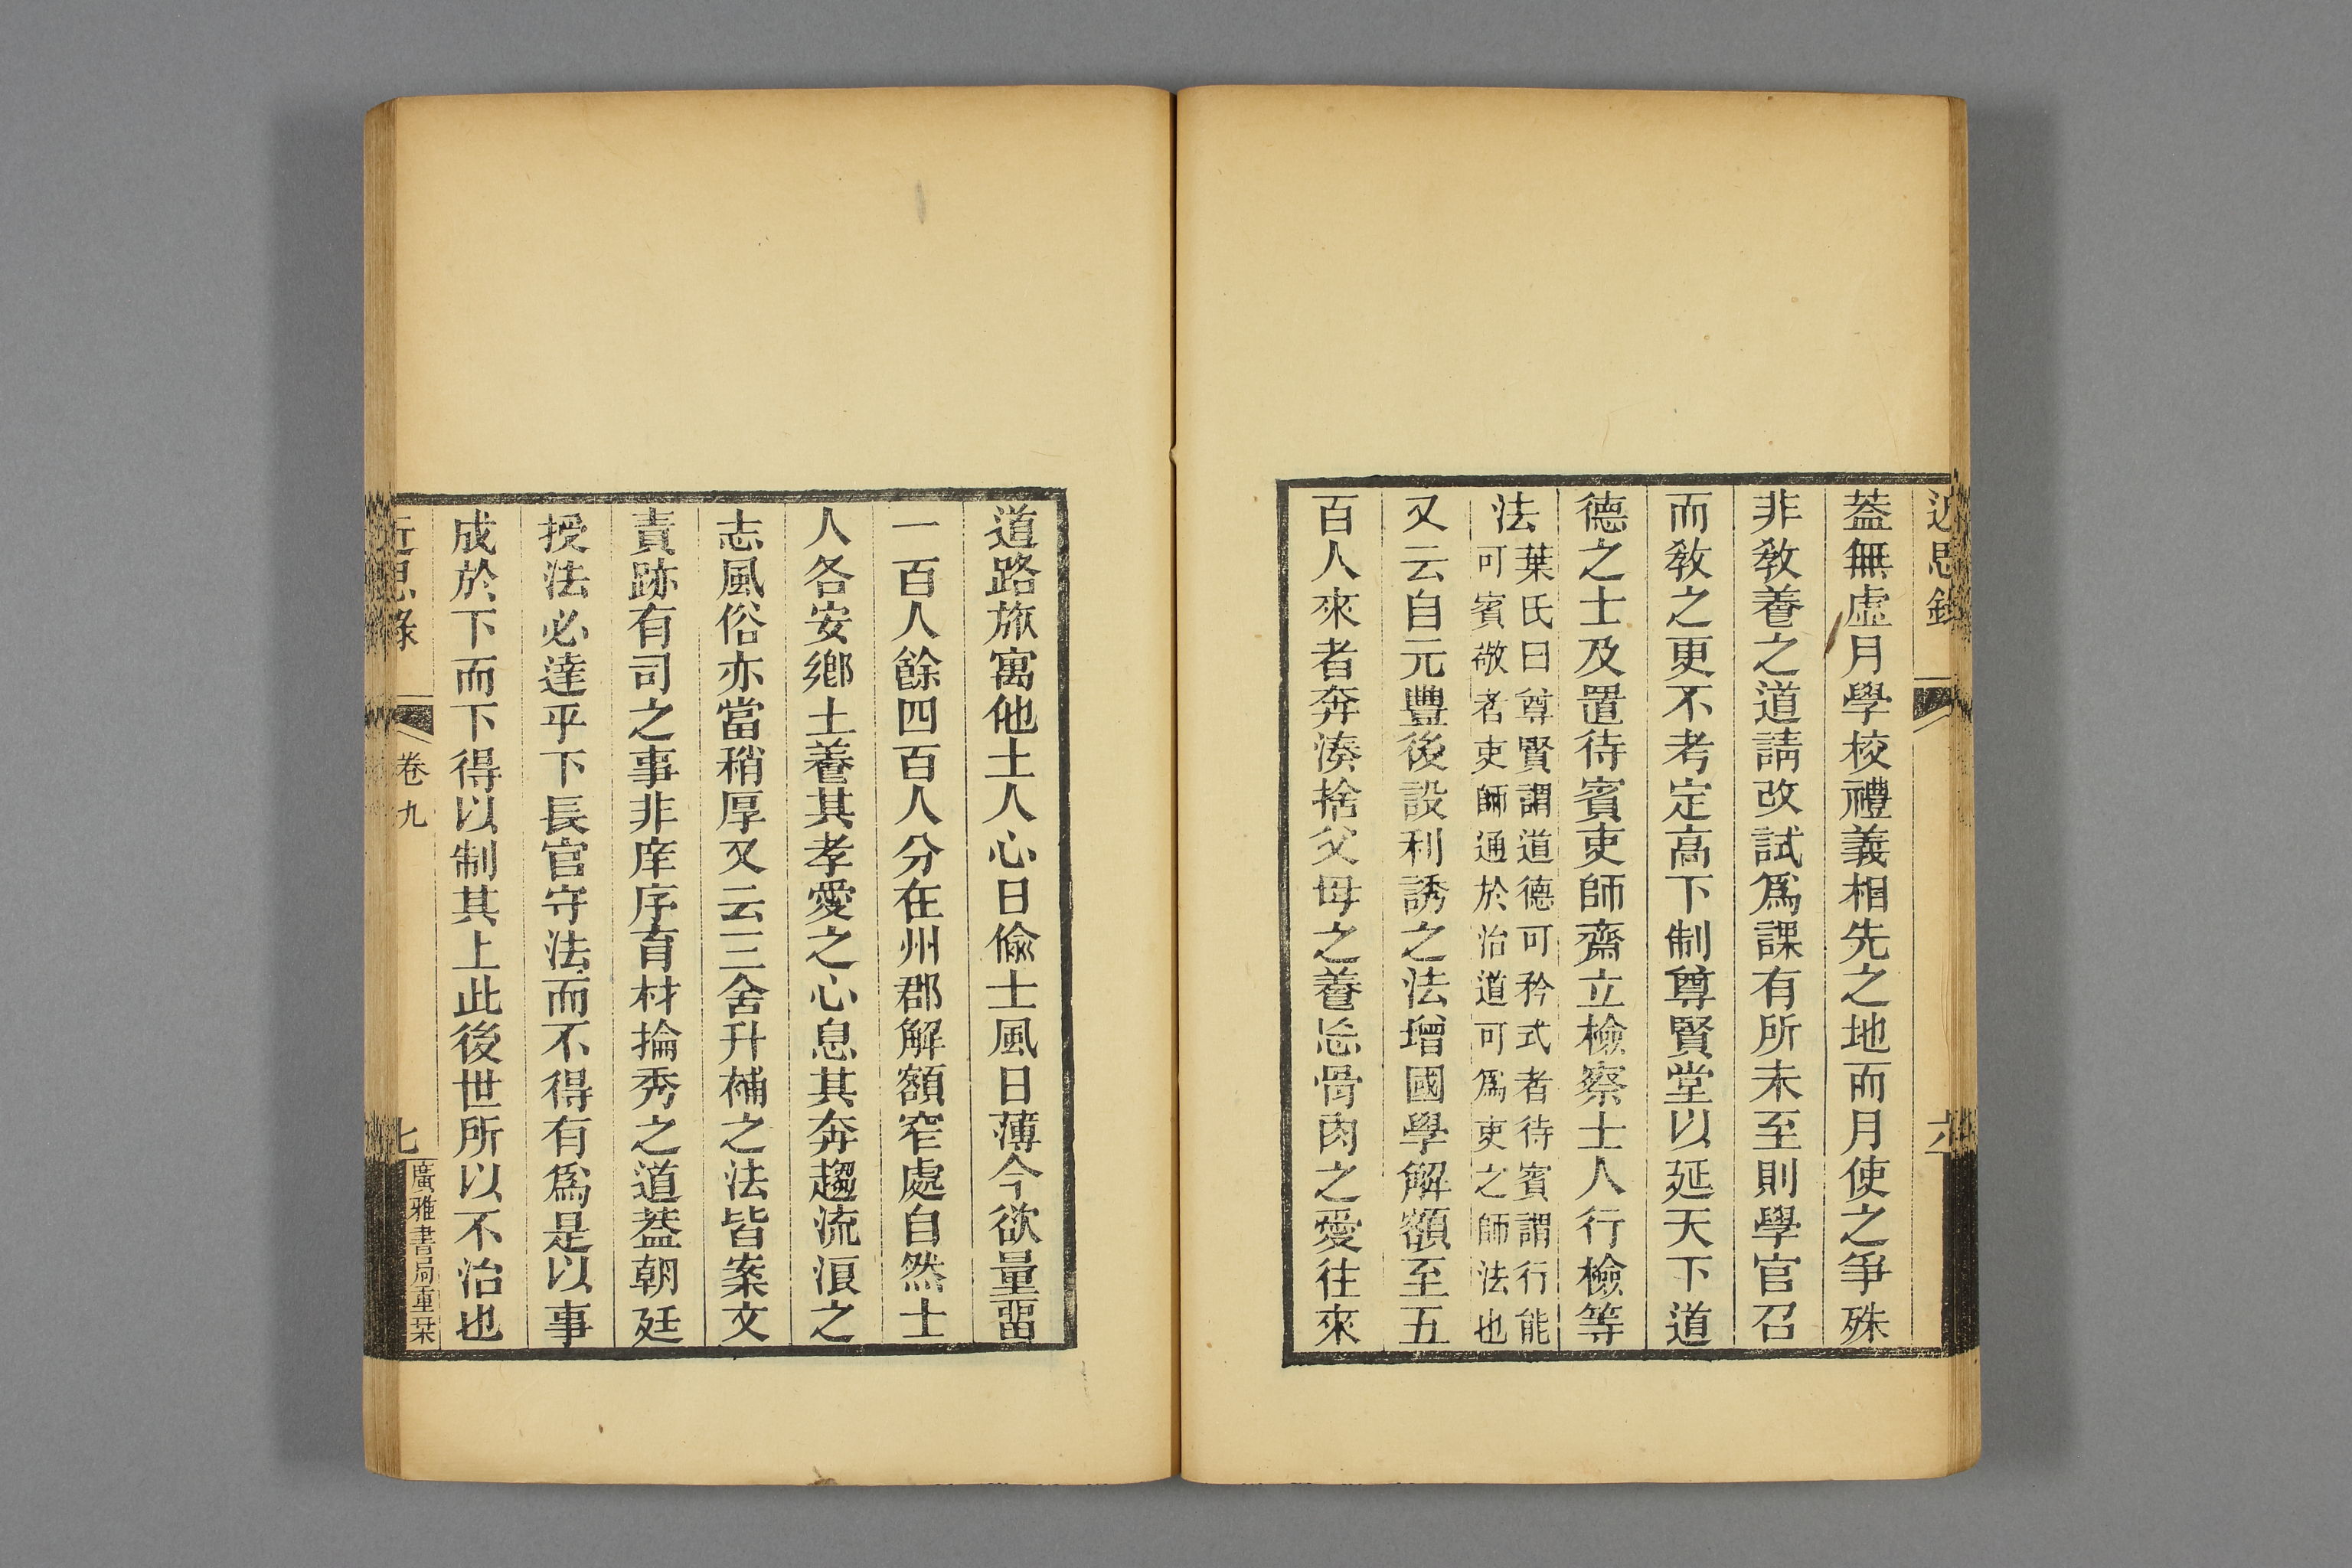 近思錄
六
葢無虛月學校禮義相先之地而月使之爭殊
非敎養之道請改試爲課有所未至則學官召
而敎之更不考定高下制尊賢堂以延天下道
德之士及置待賓吏師齋立檢察士人行檢等
法葉氏曰尊賢謂道德可矜式者待賓謂行能
可賓敬者吏師通於治道可爲吏之師法也
又云自元豐後設利誘之法增國學解額至五
百人來者奔湊捨父母之養忘骨肉之愛往來
道路旅寓他土人心日偸士風日薄今欲量畱
一百人餘四百人分在州郡解額窄處自然士
人各安鄉土養其孝愛之心息其奔趨流浪之
志風俗亦當稍厚又云三舍升補之法皆案文
責跡有司之事非庠序育材掄秀之道葢朝廷
授法必達乎下長官守法而不得有爲是以事
成於下而下得以制其上此後世所以不治也
近思錄
卷九
七
廣雅書局重栞